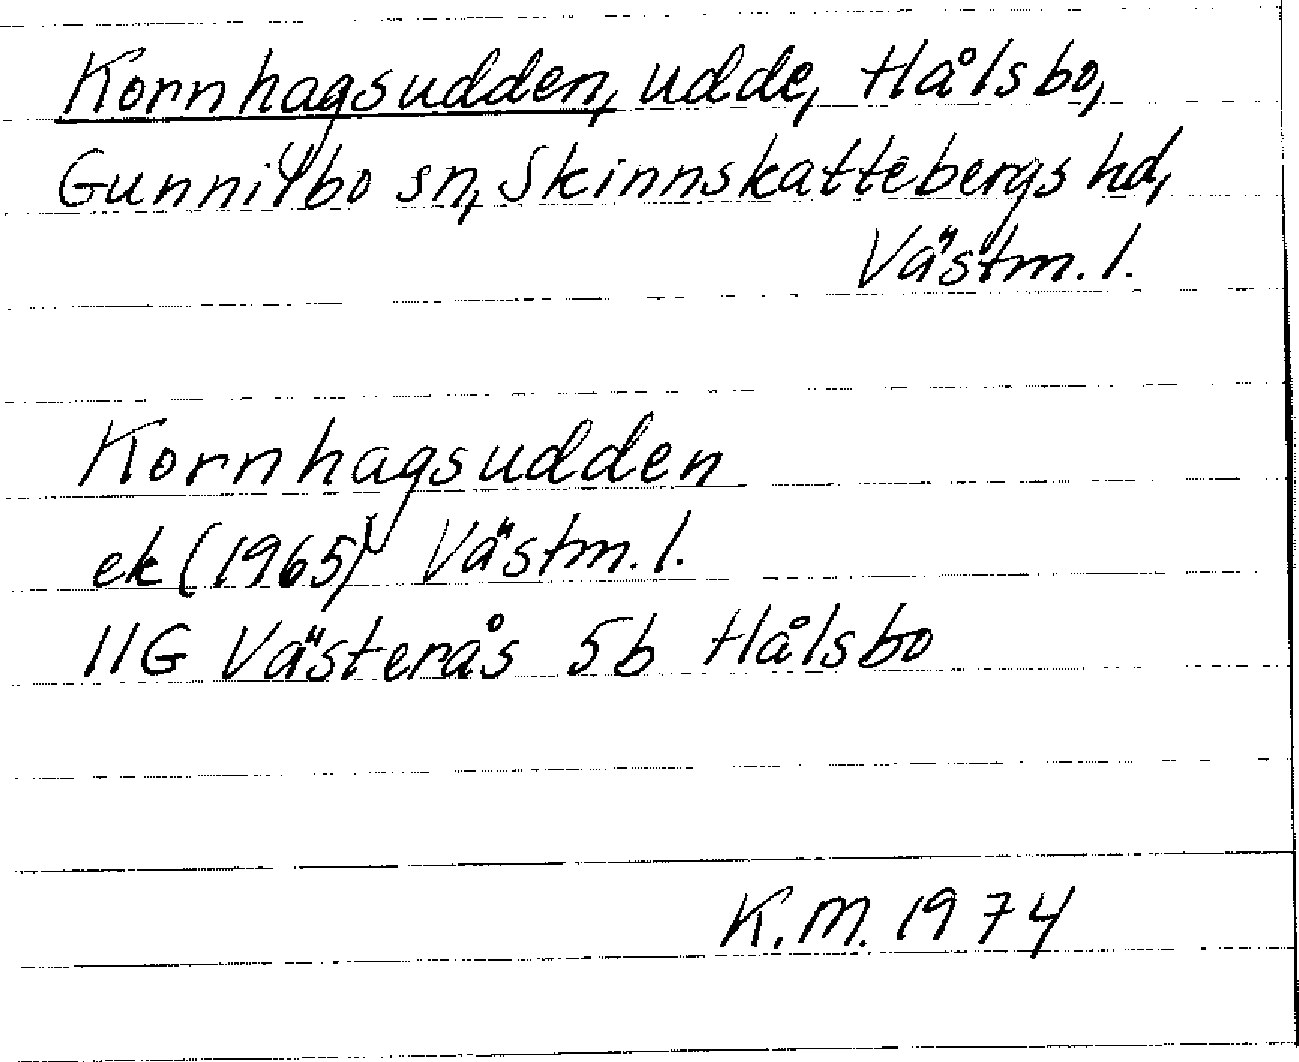 Kornhagsudden, udde, Hålsbo,
Gunnilbo sn, Skinnskattebergs hd,
Västm. l.
Kornhagsudden
ek (1965) Västm. l.
11G Västerås 5b Hålsbo
K. M. 1974